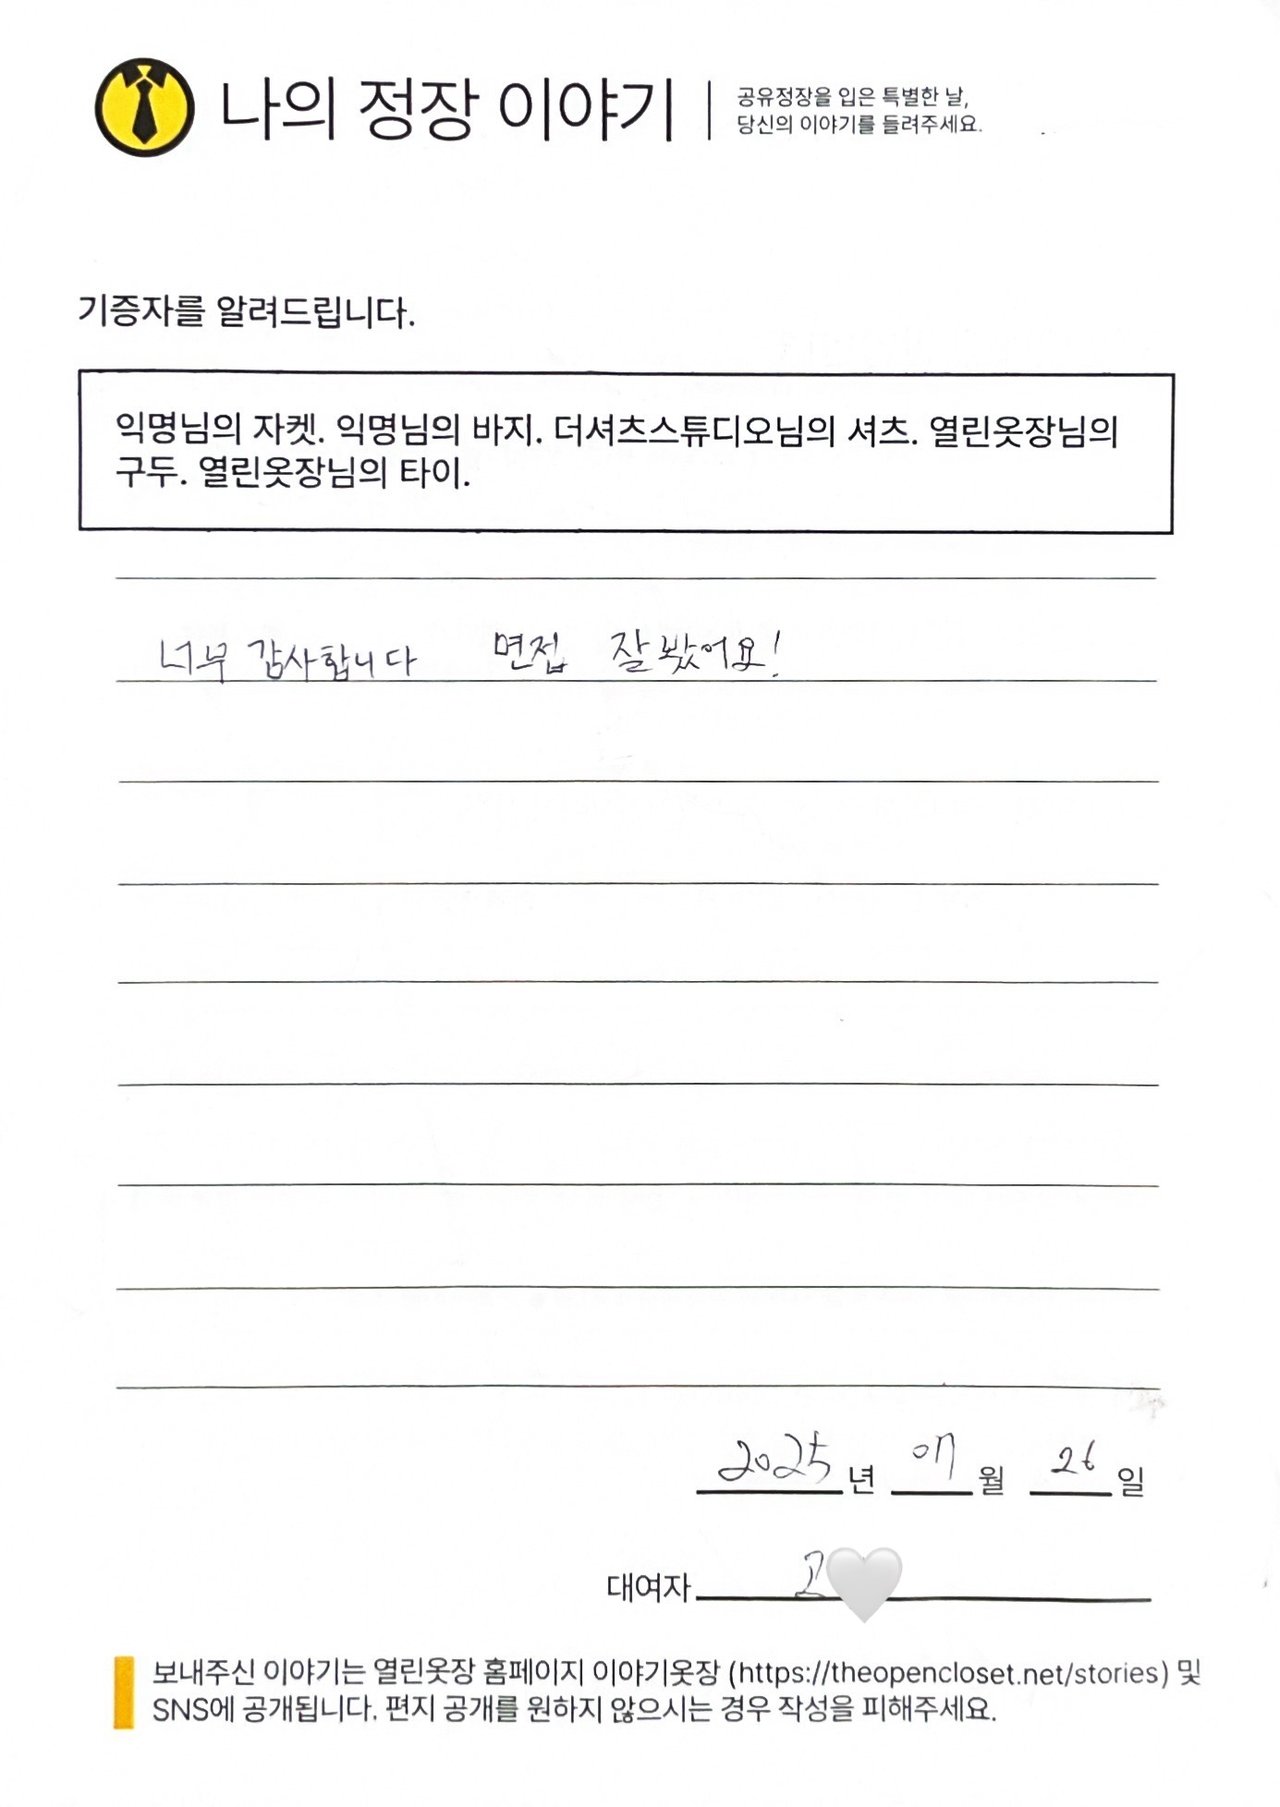 나의 정장 이야기
공유정장을 입은 특별한 날,
당신의 이야기를 들려주세요.
기증자를 알려드립니다.
익명님의 자켓. 익명님의 바지. 더셔츠스튜디오님의 셔츠. 열린옷장님의
구두. 열린옷장님의 타이.
너무 감사합니다 면접 잘 봤어요!
2025년 07월 26일
대여자 고
보내주신 이야기는 열린옷장 홈페이지 이야기옷장 (https://theopencloset.net/stories) 및
SNS에 공개됩니다. 편지 공개를 원하지 않으시는 경우 작성을 피해주세요.